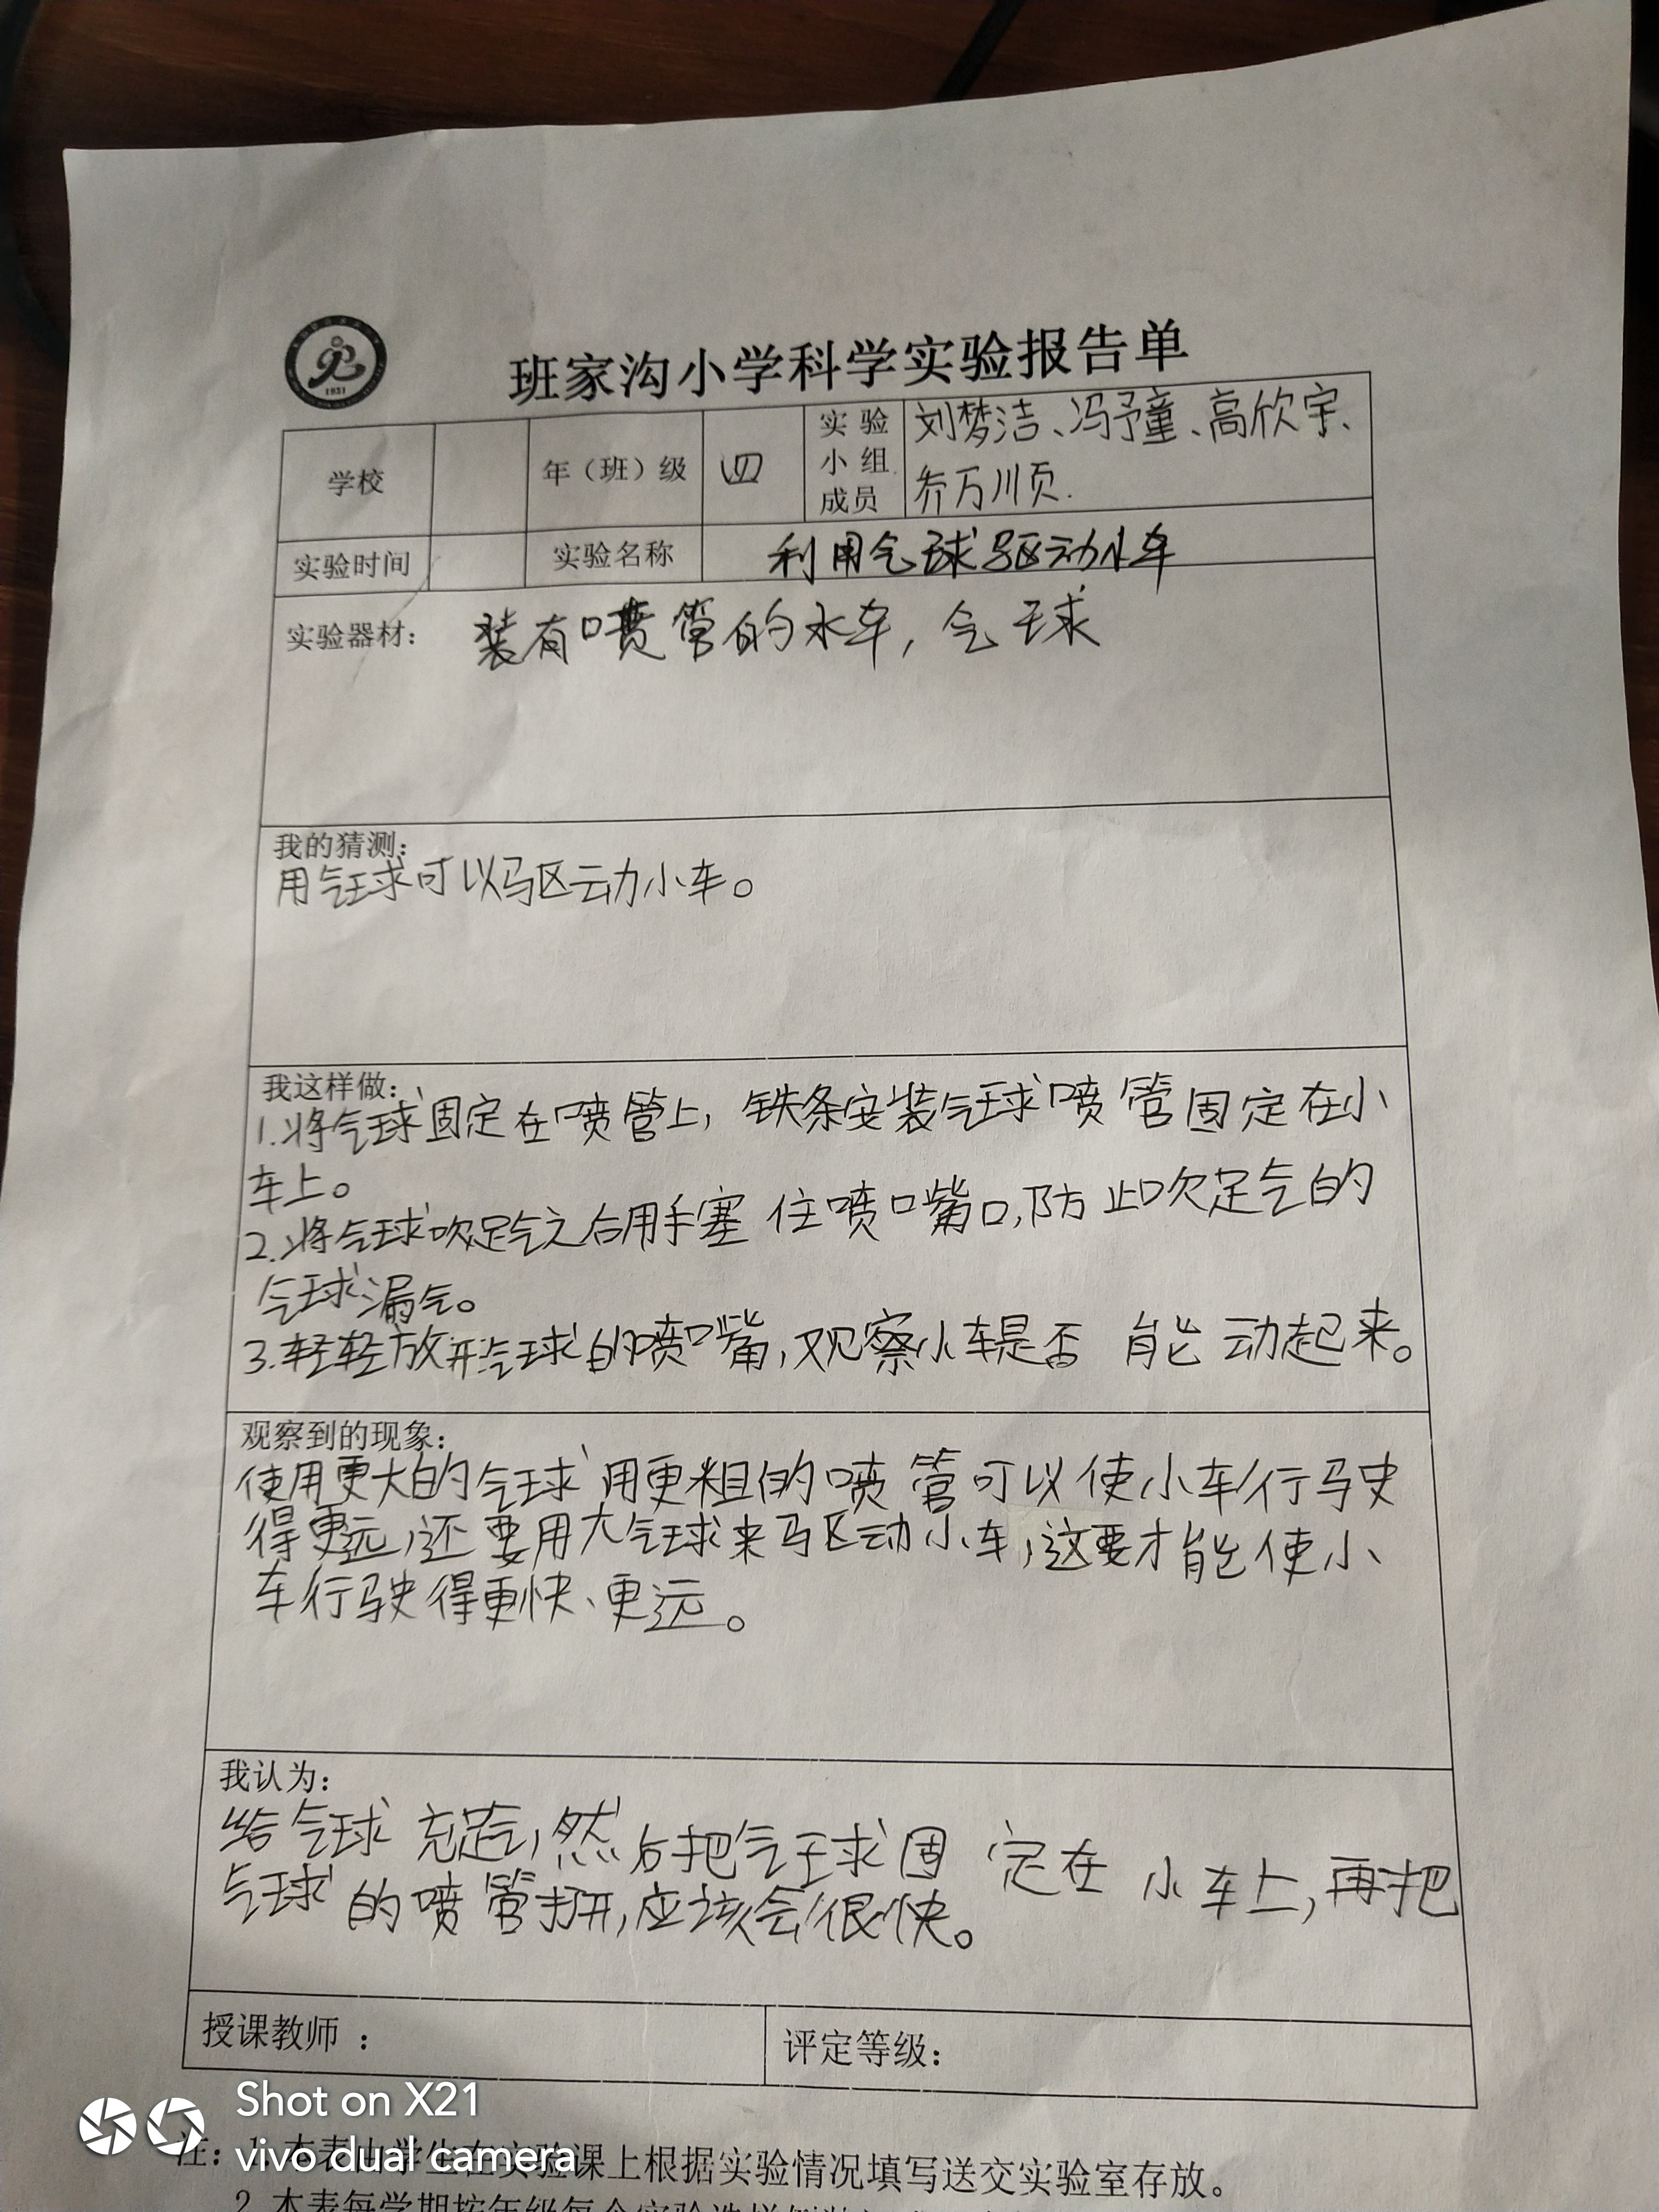 班家沟小学科学实验报告单
1931
学校 年（班）级 四 实验小组成员 刘梦洁、冯予童、高欣宇、
乔万顺.
实验时间 实验名称 利用气球驱动小车
实验器材： 装有喷管的水车，气球
我的猜测：
用气球可以驱动小车。
我这样做：
1.将气球固定在喷管上，铁条安装气球喷管固定在小
车上。
2.将气球吹足气之后用手塞住喷口嘴口，防止吹足气的
气球漏气。
3.轻轻放开气球的喷嘴，观察小车是否能动起来。
观察到的现象：
使用更大的气球用更粗的喷管可以使小车行驶
得更远，还要用大气球来驱动小车，这要才能使小
车行驶得更快、更远。
我认为：
给气球充足气，然后把气球固定在小车上，再把
气球的喷管打开，应该会很快。
授课教师： 评定等级：
Shot on X21
vivo dual camera
注：1.本表由学生在实验课上根据实验情况填写送交实验室存放。
2.本表每学期按年级每个实验选样